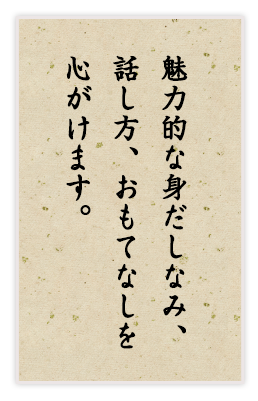 魅力的な身だしなみ、
話し方、おもてなしを
心がけます。